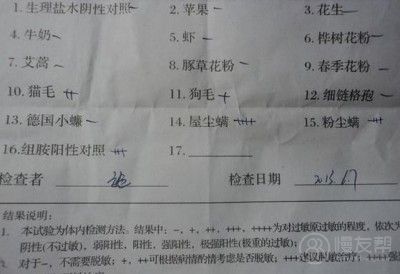 1. 生理盐水阴性对照 — 2. 苹果 — 3. 花生 —
4. 牛奶 — 5. 虾 — 6. 桦树花粉 —
7. 艾蒿 — 8. 豚草花粉 — 9. 春季花粉 —
10. 猫毛 ++ 11. 狗毛 + 12. 细链格孢 —
13. 德国小蠊 — 14. 屋尘螨 ++++ 15. 粉尘螨 +++
16. 组胺阳性对照 +++ 17.
检查者 检查日期 2015.6.17
结果说明:
1. 本试验为体内检测方法。结果中:-，+，++，+++，++++为对过敏原过敏的程度，依次为
阴性(不过敏)，弱阳性，阳性，强阳性，极强阳性(极重的过敏);
对于-，不需要脱敏；+，++可根据病情酌情考虑是否脱敏；+++建议
慢友帮